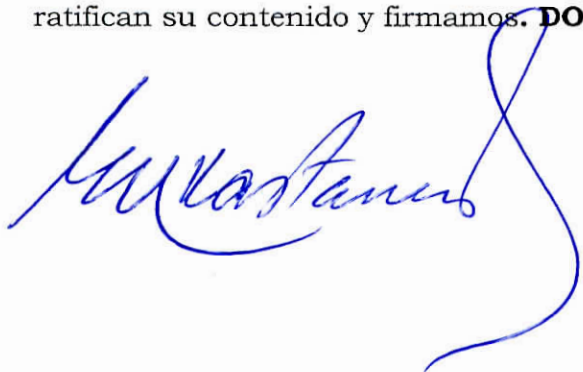 ratifican su contenido y firmamos. DO